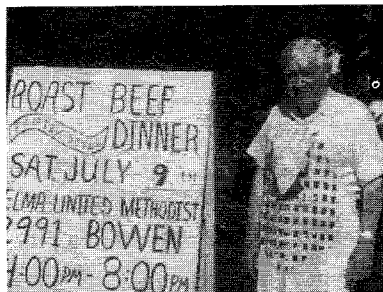 ROAST BEEF
DINNER
SAT JULY 9
ELMA UNITED METHODIST
2991 BOWEN
4:00 PM - 8:00 PM